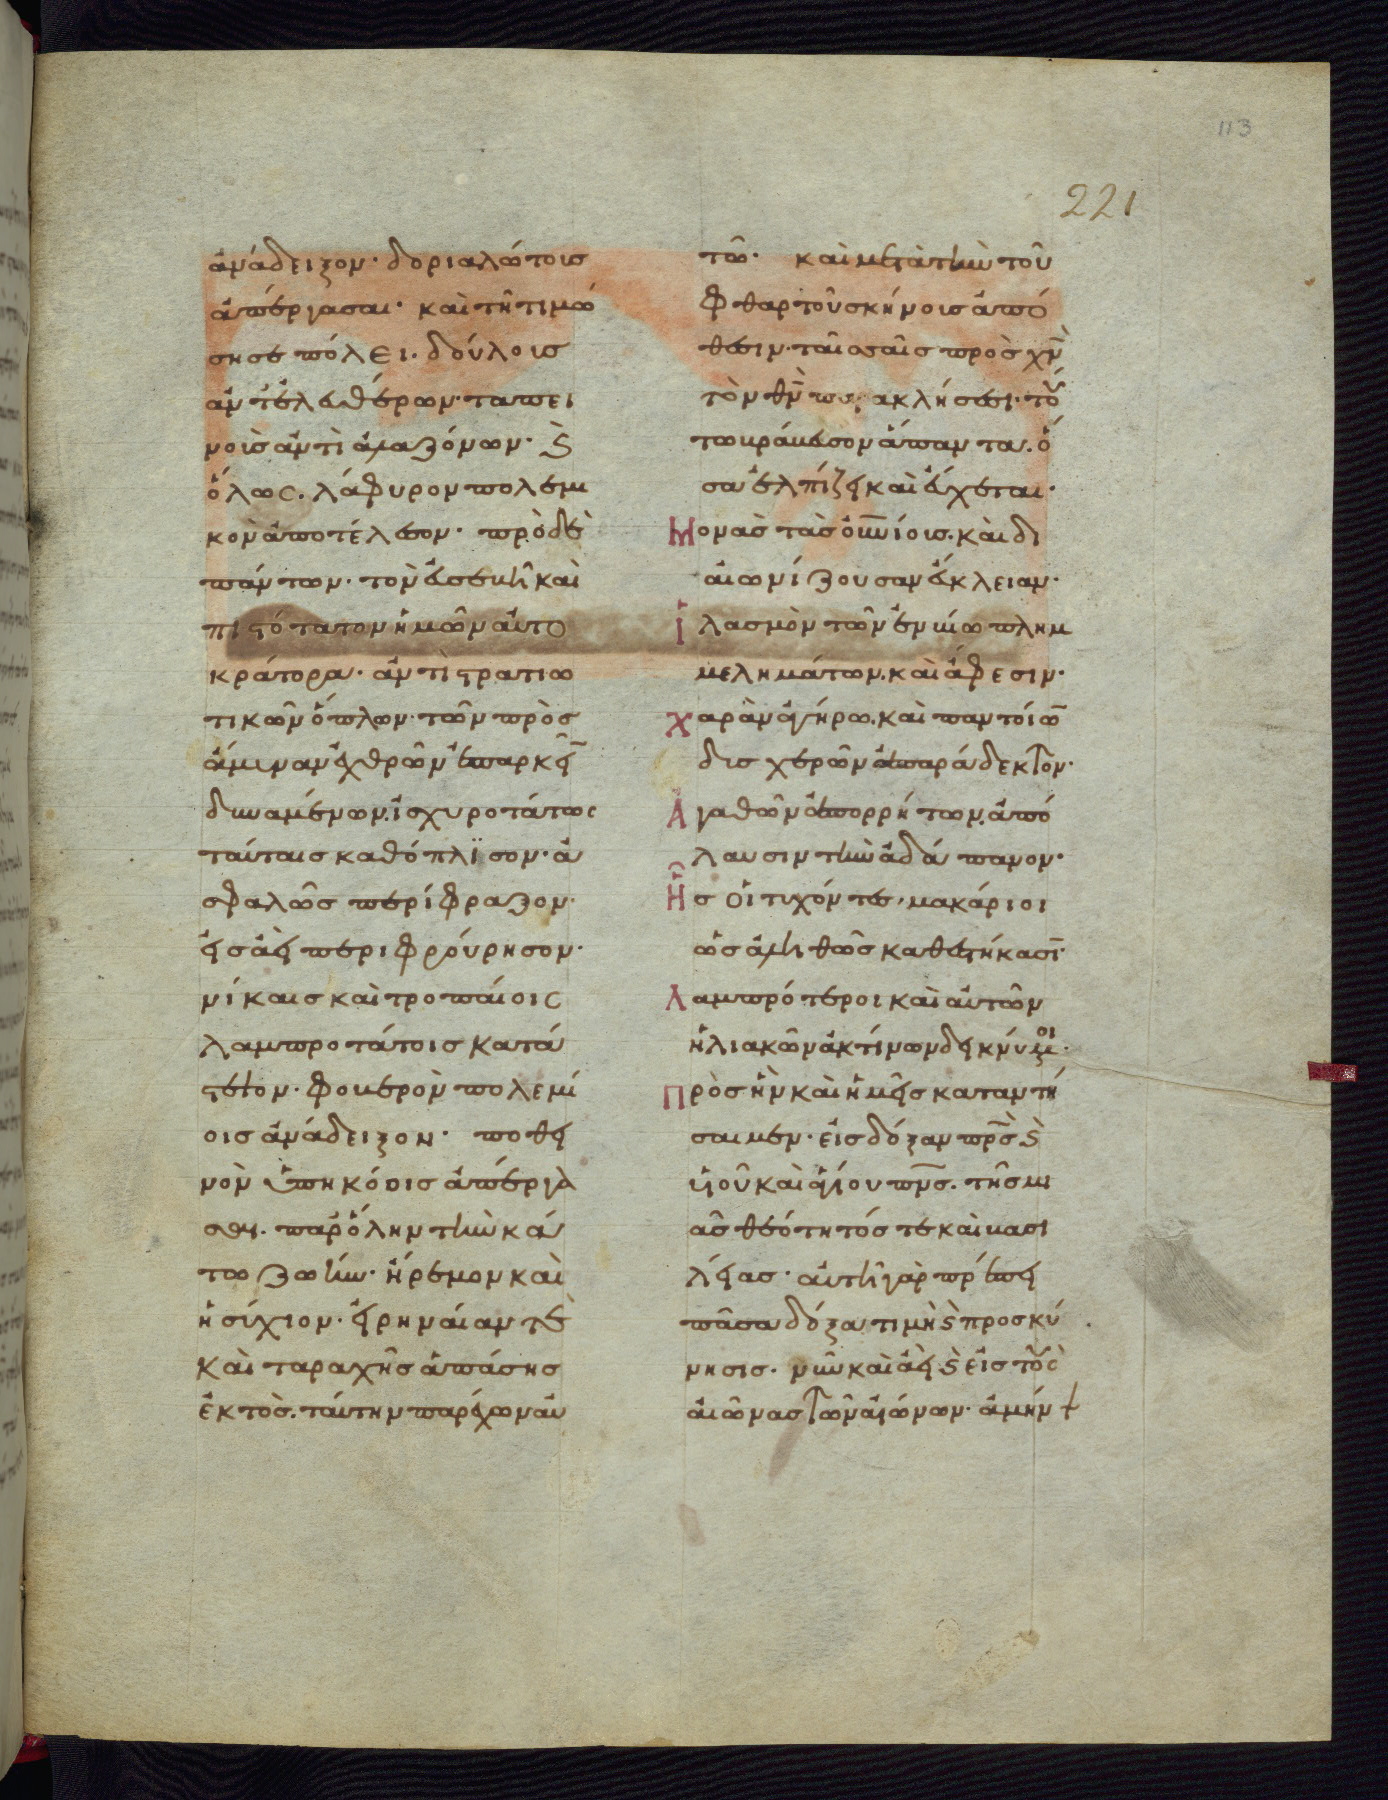 113
221
ἀνάδειξον· δοριαλώτοις
ἀπέργασαι· καὶ τῆ τιμώ
σησε πόλει· δούλοις
ἀντ' ἐλευθέρων· ταπει
νοῖς ἀντὶ ἀμαζόνων· ϗ
ὅλως. λάφυρον πολεμι
κὸν ἀποτέλεσον· πρὸ δὲ
πάντων· τὸν εὐσεβῆ καὶ
πιστότατον ἡμῶν αὐτο
κράτορα· ἀντὶ στρατιω
τικῶν ὅπλων· τῶν πρὸς
ἄμυναν ἐχθρῶν ἐπαρκεῖν
δυναμένων. ἰσχυροτάτως
ταύταις καθόπλϊσον· ἀ
σφαλῶς περίφραξον·
εἰσάεὶ περιφρούρησον·
νίκαις καὶ τροπαίοις
λαμπροτάτοις κατά
στεψον· φοβερὸν πολεμί
οις ἀνάδειξον· ποθει
νὸν ὑπηκόοις ἀπέργα
σαι. παρ' ὅλην τὴν κά
τω ζωὴν· ἤρεμον καὶ
ἡσύχιον· εἰρηναίαν τὲ
καὶ ταραχῆς ἁπάσης
ἐκτὸς. ταύτην παρέχων αὐ
τῶ· καὶ μετὰ τὴν τοῦ
φθαρτοῦ σκήνοις ἀπό
θεσιν· ταῖσ σαῖς πρὸς χν
τὸν θν παρακλήσεσι· τοῦ
τω βράβευσον ἅπαντα. ὅ
σα ἐλπίζει καὶ εὔχεται·
Μονὰς τὰς οὐνίοις. καὶ δι
αιωνίζουσαν εὔκλειαν·
Ἱλασμὸν τῶν ἐν βίω πλημ
μελημάτων. καὶ ἄφεσιν·
Χαρὰν ἀγήρω. καὶ παντοίων
δυσχερῶν ἀπαράδεκτον·
Ἀγαθῶν ἀπορρήτων. ἀπό
λαυσιν τὴν ἀδάπανον·
Ἧς οἱ τυχόντες, μακάριοι
ὡς ἀληθῶς καθεστήκασι·
Λαμπρότεροι καὶ αὐτῶν
ἡλιακῶν ἀκτίνων δεικνύμενοι·
Πρὸς ἣν καὶ ἡμεῖς καταντή
σαιμεν· εἰς δόξαν πρς ϗ
υἱοῦ καὶ ἁγίου πνς. τῆς μι
ᾶς θεότητός τε καὶ βασι
λείας· αὐτῆ γὰρ πρέπει
πᾶσα δόξα τιμὴ ϗ προσκύ
νησις. νῦν καὶ ἀεὶ ϗ εἰς τοὺς
αἰῶνας τῶν αἰώνων· ἀμήν +